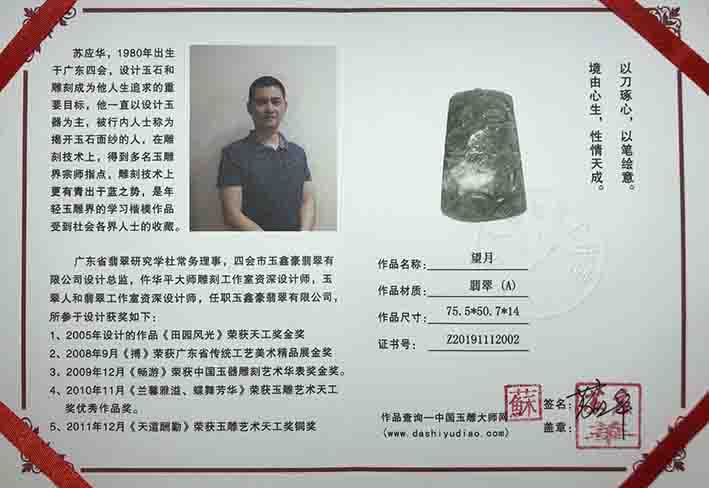 苏应华，1980年出生
于广东四会，设计玉石和
雕刻成为他人生追求的重
要目标，他一直以设计玉
器为主，被行内人士称为
揭开玉石面纱的人，在雕
刻技术上，得到多名玉雕
界宗师指点，雕刻技术上
更有青出于蓝之势，是年
轻玉雕界的学习楷模作品
受到社会各界人士的收藏。
广东省翡翠研究学社常务理事，四会市玉鑫豪翡翠有
限公司设计总监，仵华平大师雕刻工作室资深设计师，玉
翠人和翡翠工作室资深设计师，任职玉鑫豪翡翠有限公司，
所参于设计获奖如下：
1、2005年设计的作品《田园风光》荣获天工奖金奖
2、2008年9月《搏》荣获广东省传统工艺美术精品展金奖
3、2009年12月《畅游》荣获中国玉器雕刻艺术华表奖金奖。
4、2010年11月《兰馨雅溢、蝶舞芳华》荣获玉雕艺术天工
奖优秀作品奖。
5、2011年12月《天道酬勤》荣获玉雕艺术天工奖铜奖
以刀琢心，以笔绘意。
境由心生，性情天成。
作品名称：望月
作品材质：翡翠（A）
作品尺寸：75.5*50.7*14
证书号：Z20191112002
作品查询一中国玉雕大师网
(www.dashiyudiao.com)
蘇
签名：
盖章：